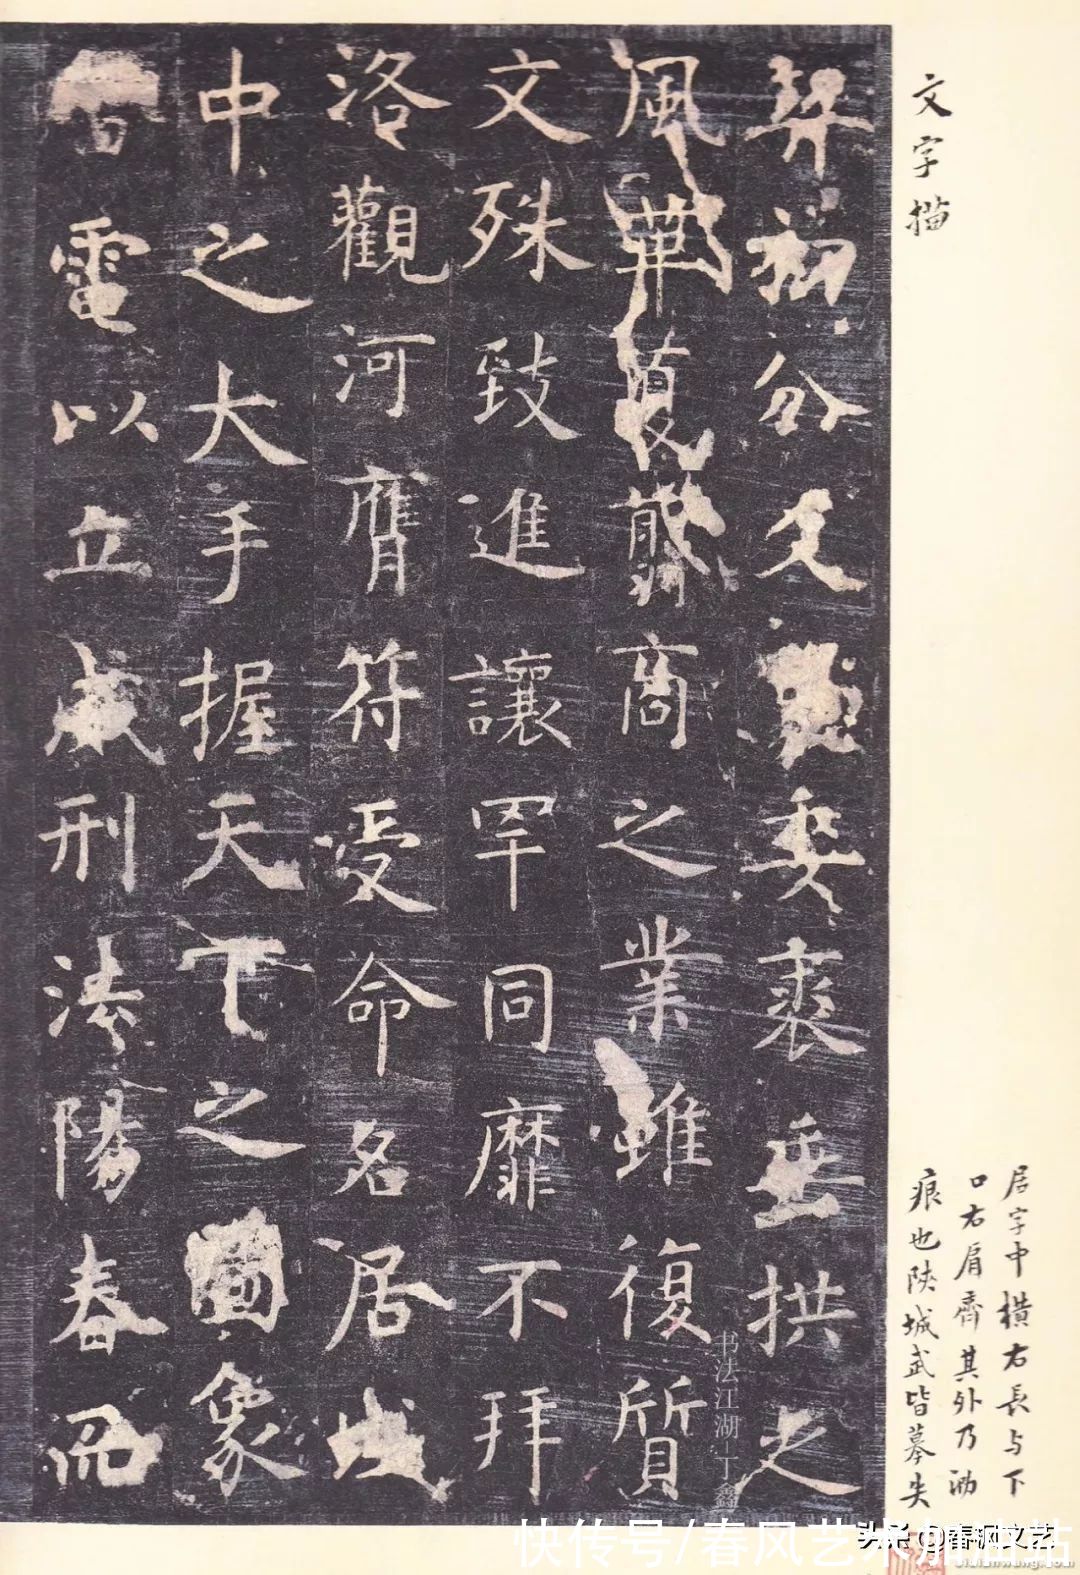 文字描
契初分爻象委裘垂拱之
風華夏翦商之業雖復質
文殊致進讓罕同靡不拜
洛觀河膺符受命名居域
中之大手握天下之圖象
雷電以立威刑法陽春而
居字中横右長与下
口右肩齊其外乃泐
痕也陕城武皆摹失
书法江湖—丁鑫
快传号/春风艺术加油站
头条@春风文艺